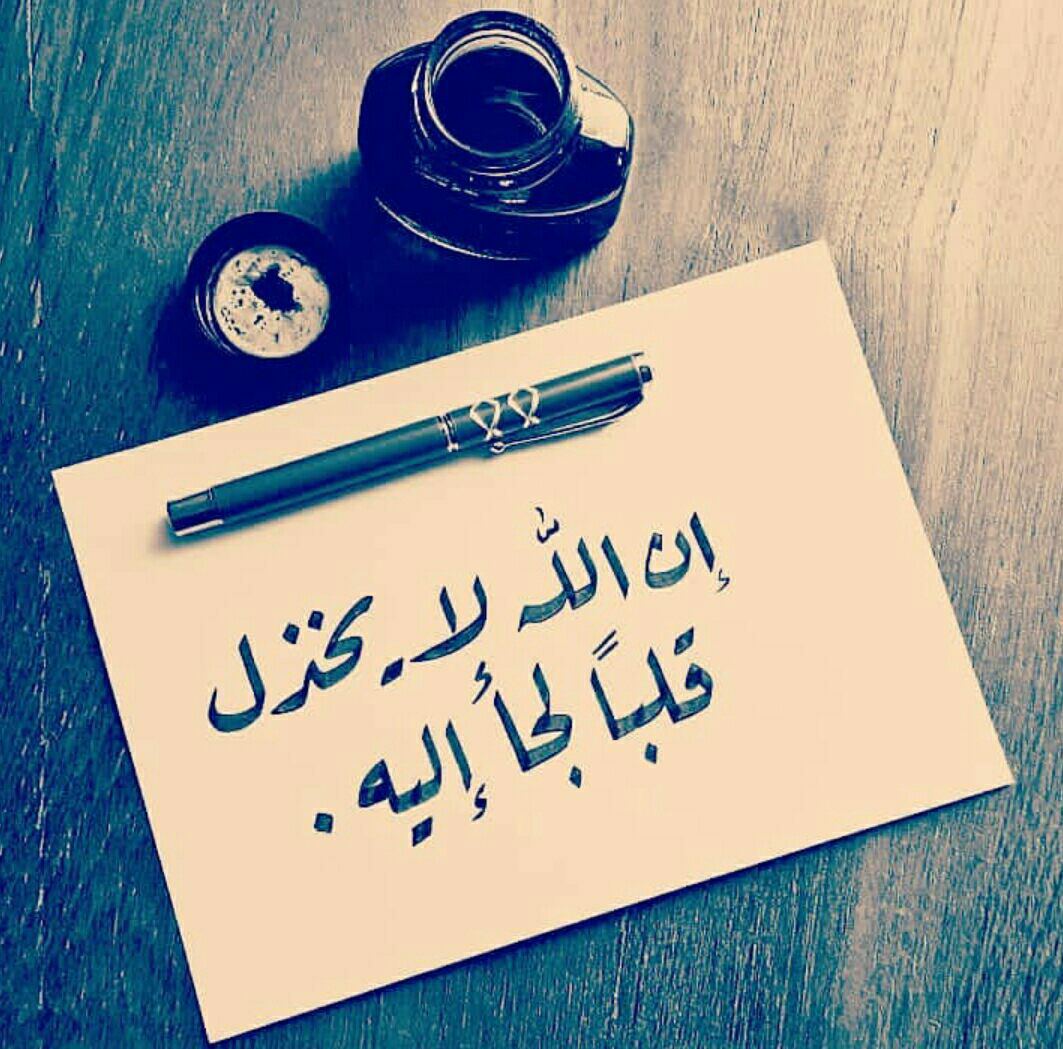 إن اللّٰه لا يخذل
قلباً لجأ إليه .